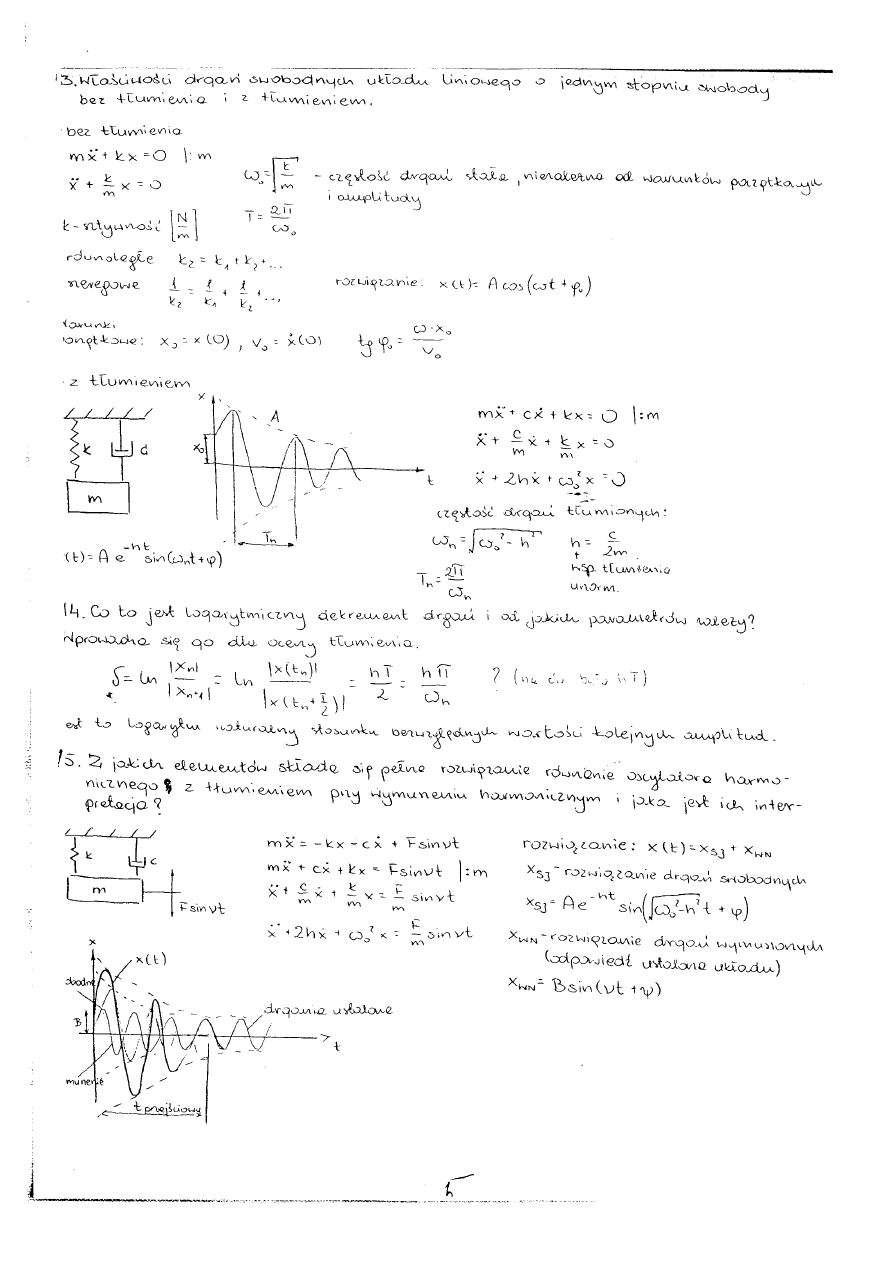 13. Właściwości drgań swobodnych układu liniowego o jednym stopniu swobody
bez tłumienia i z tłumieniem.
· bez tłumienia
mẍ + kx = 0 |:m
ẍ + k/m x = 0
ω₀ = √(k/m) - częstość drgań stała, niezależna od warunków początkowych
i amplitudy
k - sztywność [N/m]
T = 2π/ω₀
równoległe k_z = k₁ + k₂ + ...
szeregowe 1/k_z = 1/k₁ + 1/k₂ + ...
rozwiązanie: x(t) = A cos(ωt + φ₀)
warunki
początkowe: x₀ = x(0), v₀ = ẋ(0) tg φ₀ = ω·x₀/v₀
· z tłumieniem
k c
m
x A
x₀
t
Tₕ
x(t) = A e^(-ht) sin(ωₕt + φ)
mẍ + cẋ + kx = 0 |:m
ẍ + c/m ẋ + k/m x = 0
ẍ + 2hẋ + ω₀² x = 0
częstość drgań tłumionych:
ωₕ = √(ω₀² - h²) h = c/2m
Tₕ = 2π/ωₕ
wsp. tłumienia
unorm.
14. Co to jest logarytmiczny dekrement drgań i od jakich parametrów zależy?
Wprowadza się go dla oceny tłumienia.
δ = ln |xₙ|/|xₙ₊₁| = ln |x(tₙ)|/|x(tₙ + T/2)| = hT/2 = hπ/ωₕ ? (na ćw. hT)
Jest to logarytm naturalny stosunku bezwzględnych wartości kolejnych amplitud.
15. Z jakich elementów składa się pełne rozwiązanie równanie oscylatora harmo-
nicznego z tłumieniem przy wymuszeniu harmonicznym i jaka jest ich inter-
pretacja?
k c
m
F sinνt
mẍ = -kx - cẋ + F sinνt
mẍ + cẋ + kx = F sinνt |:m
ẍ + c/m ẋ + k/m x = F/m sinνt
ẍ + 2hẋ + ω₀² x = F/m sinνt
rozwiązanie: x(t) = x_SJ + x_WN
x_SJ - rozwiązanie drgań swobodnych
x_SJ = A e^(-ht) sin(√(ω₀² - h²) t + φ)
x_WN - rozwiązanie drgań wymuszonych
(odpowiedź ustalona układu)
x_WN = B sin(νt + ψ)
x
x(t)
B
drgania ustalone
t
t przejściowy
5